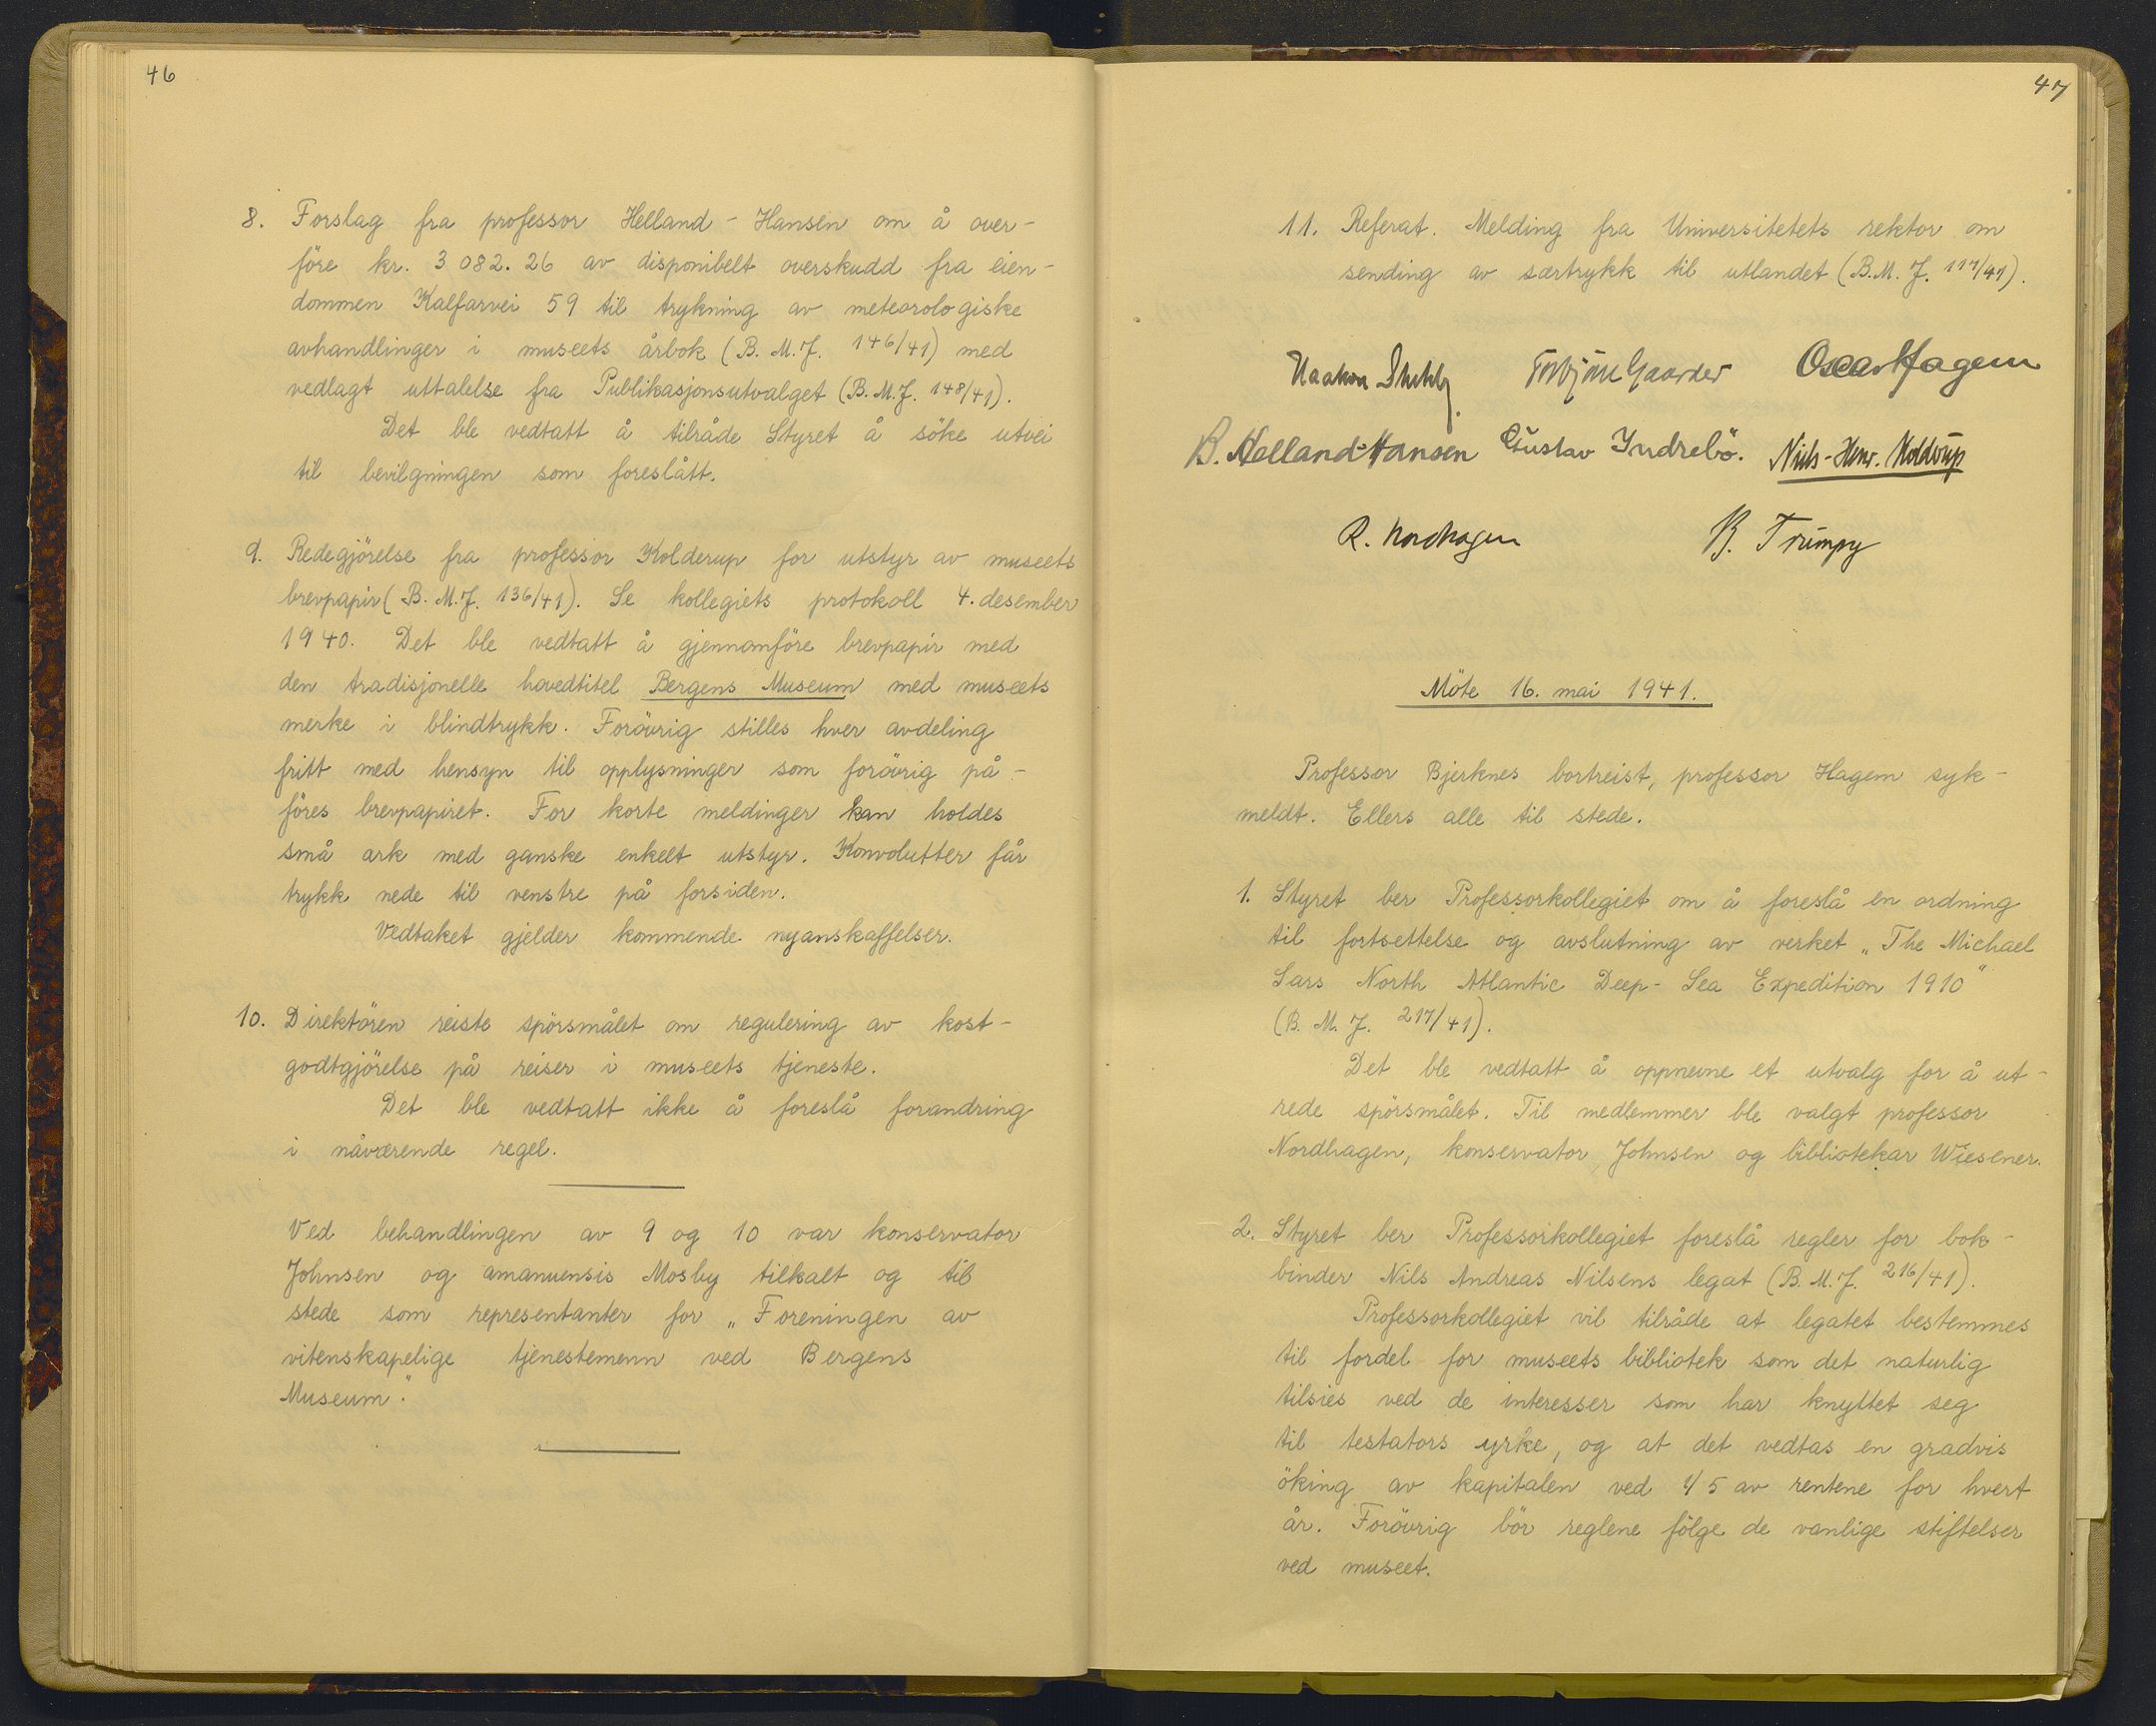 46
8. Forslag fra professor Helland-Hansen om å over-
före kr. 3 082.26 av disponibelt overskudd fra eien-
dommen Kalfarvei 59 til trykning av meteorologiske
avhandlinger i museets årbok (B. M. J. 146/41) med
vedlagt uttalelse fra Publikasjonsutvalget (B. M. J. 148/41).
Det ble vedtatt å tilråde Styret å söke utvei
til bevilgningen som foreslått.
9. Redegjörelse fra professor Kolderup for utstyr av museets
brevpapir (B. M. J. 136/41). Se kollegiets protokoll 4. desember
1940. Det ble vedtatt å gjennomföre brevpapir med
den tradisjonelle hovedtitel Bergens Museum med museets
merke i blindtrykk. Forövrig stilles hver avdeling
fritt med hensyn til opplysninger som forövrig på-
föres brevpapiret. For korte meldinger kan holdes
små ark med ganske enkelt utstyr. Konvolutter får
trykk nede til venstre på forsiden.
Vedtaket gjelder kommende nyanskaffelser.
10. Direktören reiste spörsmålet om regulering av kost-
godtgjörelse på reiser i museets tjeneste.
Det ble vedtatt ikke å foreslå forandring
i nåværende regel.
Ved behandlingen av 9 og 10 var konservator
Johnsen og amanuensis Mosby tilkalt og til
stede som representanter for „Foreningen av
vitenskapelige tjenestemenn ved Bergens
Museum".
47
11. Referat. Melding fra Universitetets rektor om
sending av særtrykk til utlandet (B. M. J. 117/41).
Haakon Shetelig Torbjörn Gaarder Oscar Hagem
B. Helland-Hansen Gustav Indrebö. Niels-Henr. Kolderup
R. Nordhagen B. Trumpy
Möte 16. mai 1941.
Professor Bjerknes bortreist, professor Hagem syk-
meldt. Ellers alle til stede.
1. Styret ber Professorkollegiet om å foreslå en ordning
til fortsettelse og avslutning av verket „The Michael
Sars North Atlantic Deep-Sea Expedition 1910"
(B. M. J. 217/41).
Det ble vedtatt å oppnevne et utvalg for å ut-
rede spörsmålet. Til medlemmer ble valgt professor
Nordhagen, konservator Johnsen og bibliotekar Wiesener.
2. Styret ber Professorkollegiet foreslå regler for bok-
binder Nils Andreas Nilsens legat (B. M. J. 216/41).
Professorkollegiet vil tilråde at legatet bestemmes
til fordel for museets bibliotek som det naturlig
tilsies ved de interesser som har knyttet seg
til testators yrke, og at det vedtas en gradvis
öking av kapitalen ved 1/5 av rentene for hvert
år. Forövrig bör reglene fölge de vanlige stiftelser
ved museet.